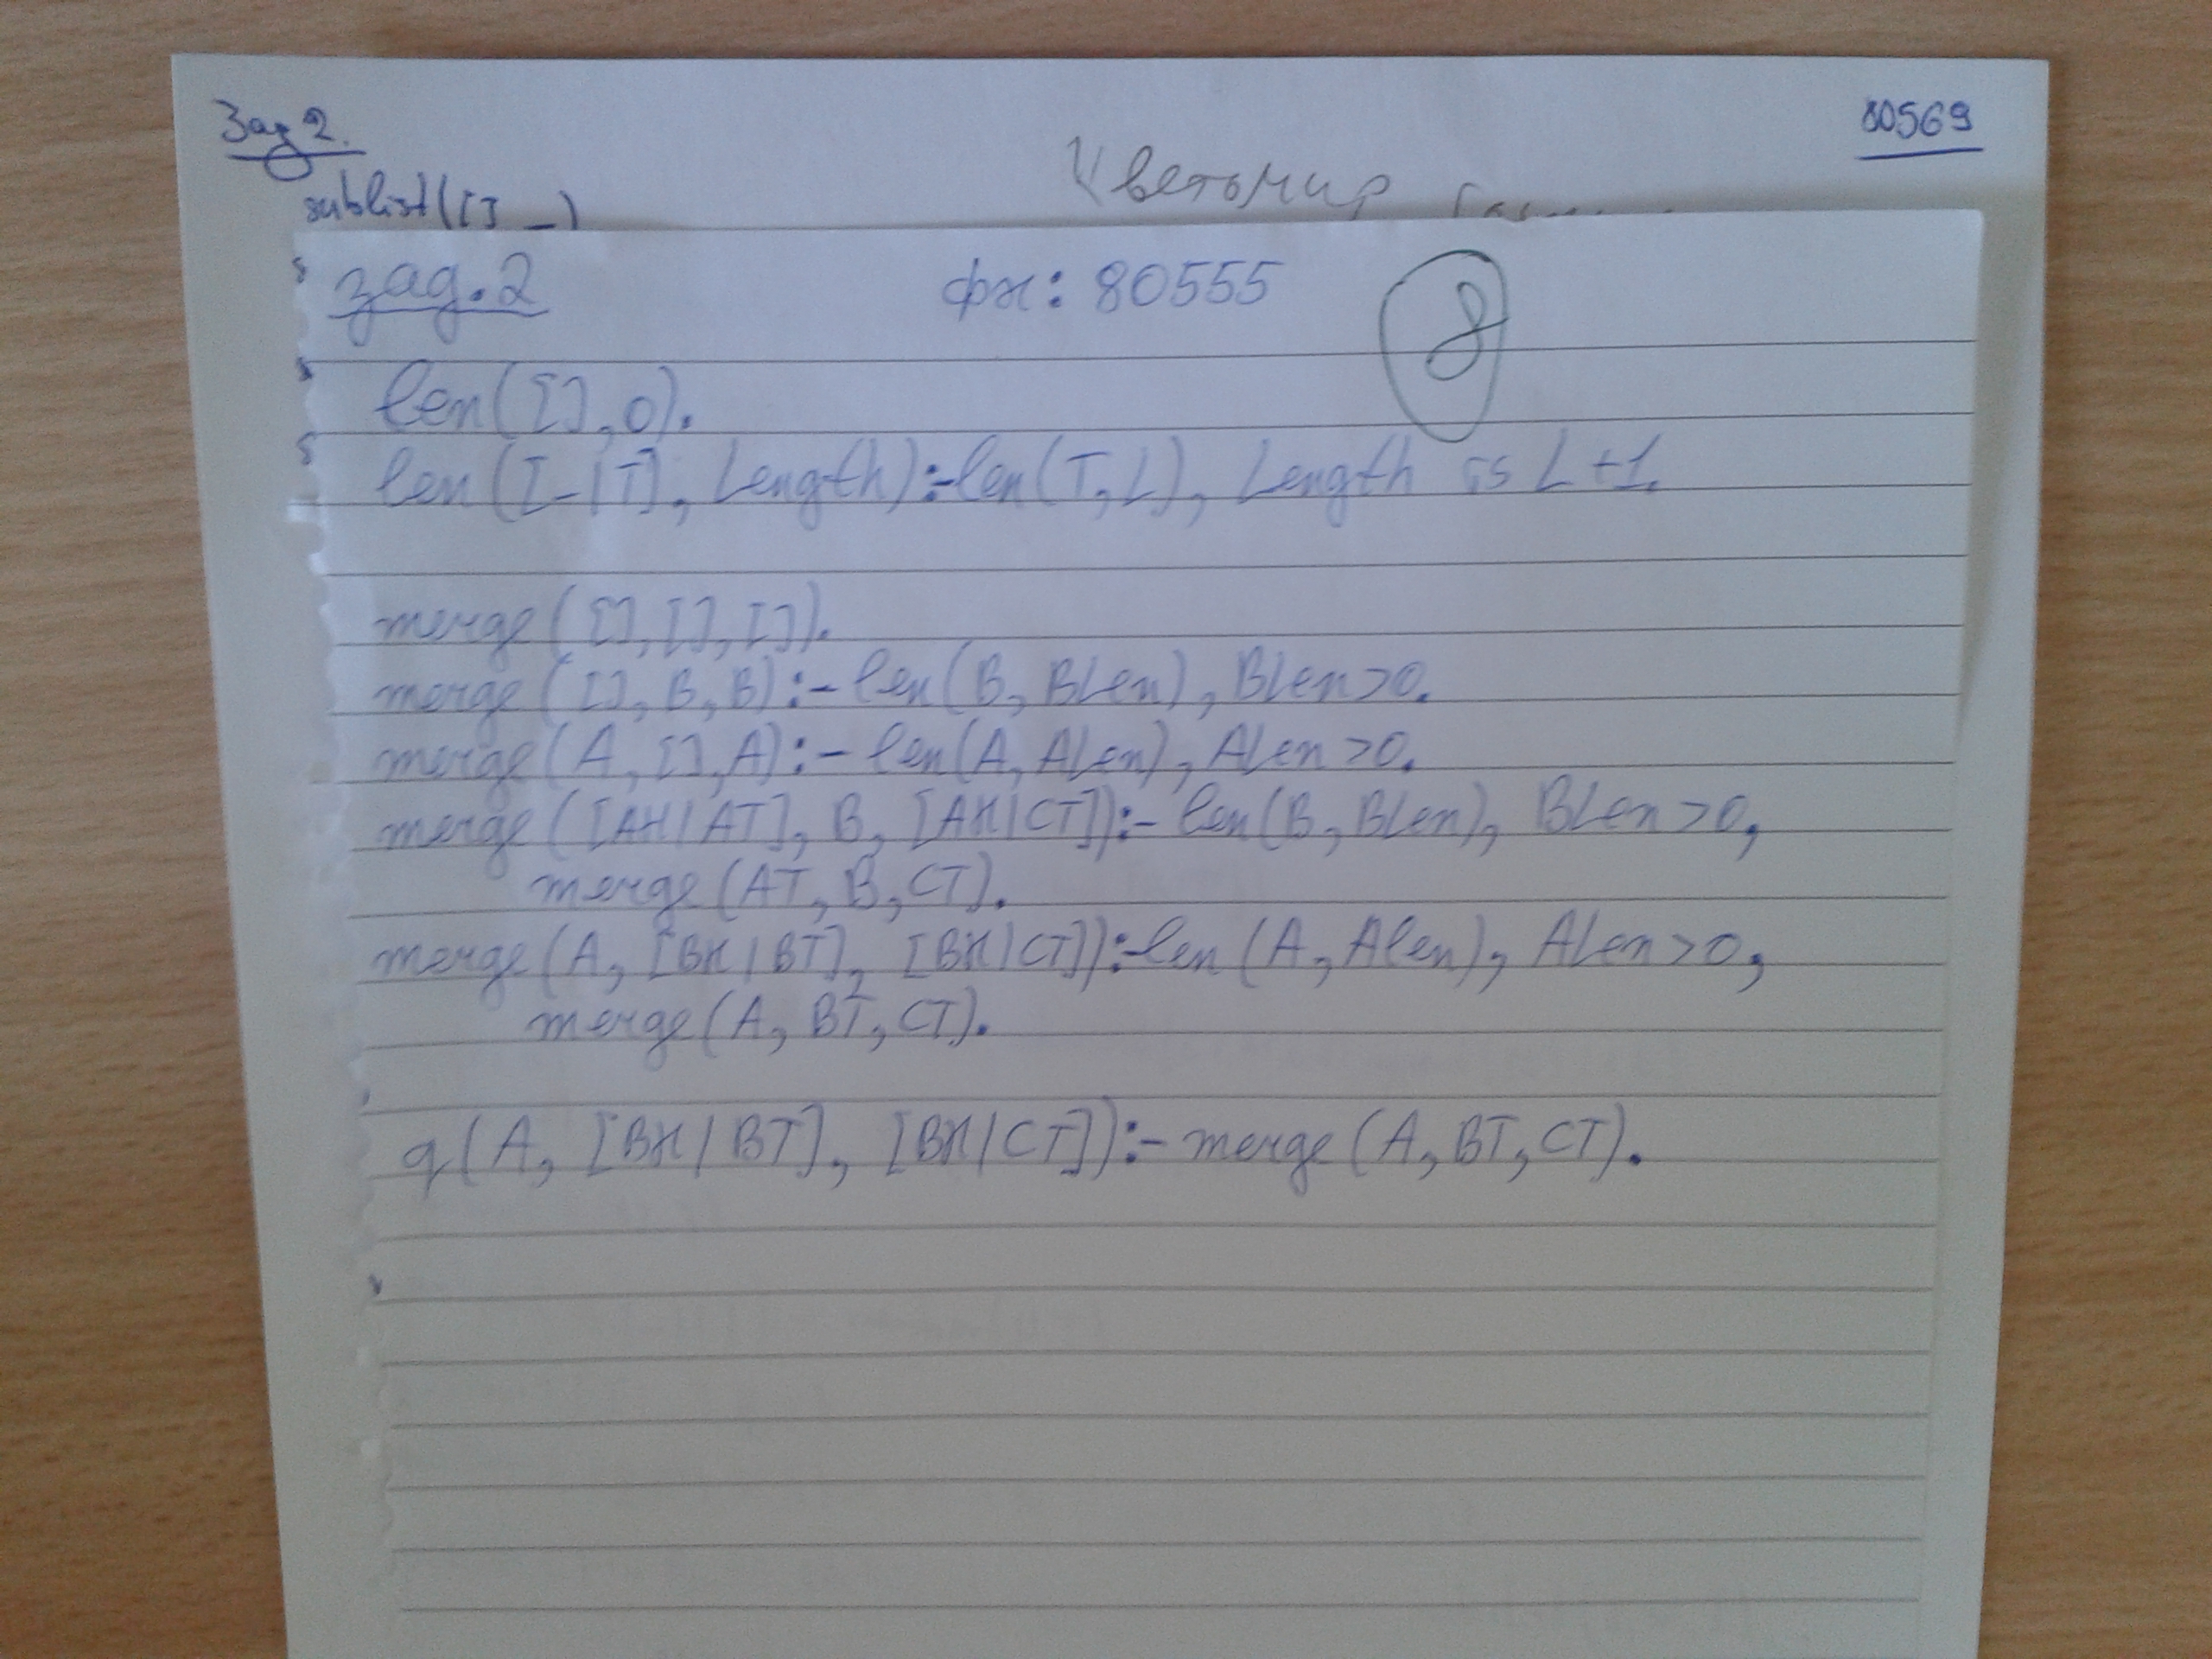 Зад 2.
80569
Цветомир
sublist([] _)
зад. 2
фн: 80555
8
len([],0).
len([_|T], Length):-len(T,L), Length is L+1.
merge([],[],[]).
merge([],B,B):-len(B,BLen),BLen>0.
merge(A,[],A):-len(A,ALen),ALen>0.
merge([AH|AT],B,[AH|CT]):-len(B,BLen),BLen>0,
merge(AT,B,CT).
merge(A,[BH|BT],[BH|CT]):-len(A,ALen),ALen>0,
merge(A,BT,CT).
q(A,[BH|BT],[BH|CT]):-merge(A,BT,CT).